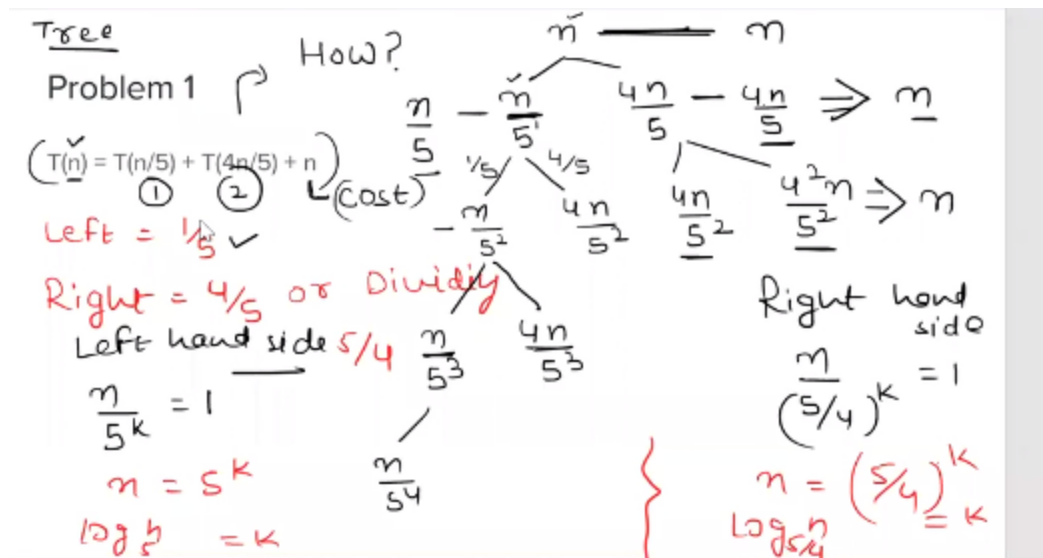 Tree
How?
Problem 1
T(n) = T(n/5) + T(4n/5) + n
1 2
(cost)
Left = 1/5 ✓
Right = 4/5 or Dividiy
5/4
Left hand side
n/5^k = 1
n = 5^k
log_5 n = k
n — n
n/5 — n/5^1 4n/5 — 4n/5 ⇒ n
1/5 4/5
- n/5^2 4n/5^2 4n/5^2 4^2n/5^2 ⇒ n
n/5^3 4n/5^3
n/5^4
Right hand
side
n/(5/4)^k = 1
n = (5/4)^k
Log_5/4 n = k